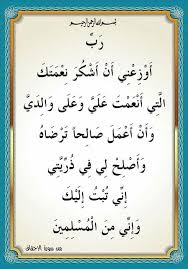 بسم الله الرحمن الرحيم
رَبِّ
أَوْزِعْنِي أَنْ أَشْكُرَ نِعْمَتَكَ
الَّتِي أَنْعَمْتَ عَلَيَّ وَعَلَى وَالِدَيَّ
وَأَنْ أَعْمَلَ صَالِحاً تَرْضَاهُ
وَأَصْلِحْ لِي فِي ذُرِّيَّتِي
إِنِّي تُبْتُ إِلَيْكَ
وَإِنِّي مِنَ الْمُسْلِمِينَ
من سورة الأحقاف